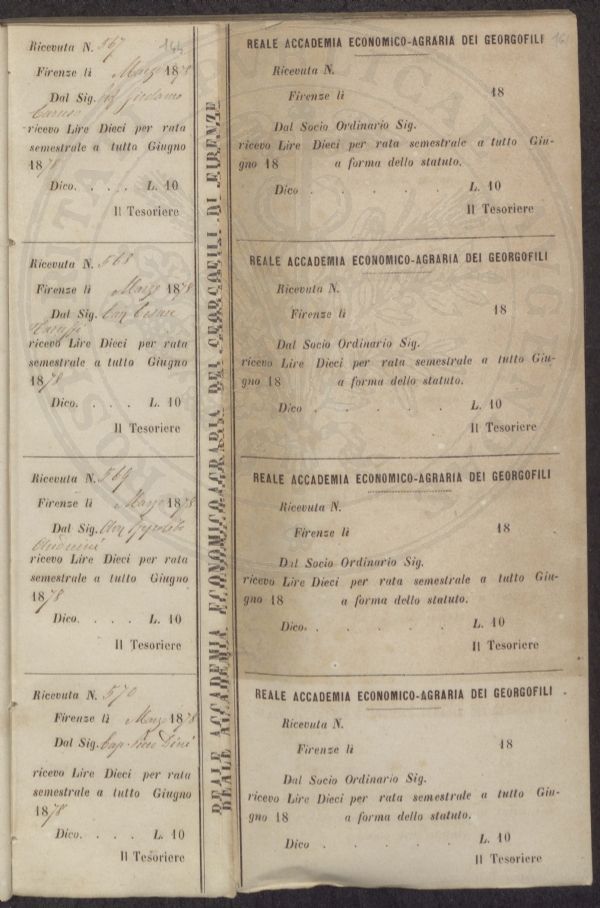 Ricevuta N. 567 164
Firenze li Marzo 1878
Dal Sig. Girolamo
Caruso
ricevo Lire Dieci per rata
semestrale a tutto Giugno
1878
Dico. . . . L. 10
Il Tesoriere
Ricevuta N. 568
Firenze li Marzo 1878
Dal Sig. Cesare
ricevo Lire Dieci per rata
semestrale a tutto Giugno
1878
Dico. . . . L. 10
Il Tesoriere
Ricevuta N. 569
Firenze li Marzo 1878
Dal Sig.
ricevo Lire Dieci per rata
semestrale a tutto Giugno
1878
Dico. . . . L. 10
Il Tesoriere
Ricevuta N. 570
Firenze li Marzo 1878
Dal Sig. Dini
ricevo Lire Dieci per rata
semestrale a tutto Giugno
1878
Dico. . . . L. 10
Il Tesoriere
REALE ACCADEMIA ECONOMICO-AGRARIA DEI GEORGOFILI DI FIRENZE
REALE ACCADEMIA ECONOMICO-AGRARIA DEI GEORGOFILI
Ricevuta N.
Firenze li 18
Dal Socio Ordinario Sig.
ricevo Lire Dieci per rata semestrale a tutto Giu-
gno 18 a forma dello statuto.
Dico . . . . . L. 10
Il Tesoriere
REALE ACCADEMIA ECONOMICO-AGRARIA DEI GEORGOFILI
Ricevuta N.
Firenze li 18
Dal Socio Ordinario Sig.
ricevo Lire Dieci per rata semestrale a tutto Giu-
gno 18 a forma dello statuto.
Dico . . . . . L. 10
Il Tesoriere
REALE ACCADEMIA ECONOMICO-AGRARIA DEI GEORGOFILI
Ricevuta N.
Firenze li 18
Dal Socio Ordinario Sig.
ricevo Lire Dieci per rata semestrale a tutto Giu-
gno 18 a forma dello statuto.
Dico. . . . . L. 10
Il Tesoriere
REALE ACCADEMIA ECONOMICO-AGRARIA DEI GEORGOFILI
Ricevuta N.
Firenze li 18
Dal Socio Ordinario Sig.
ricevo Lire Dieci per rata semestrale a tutto Giu-
gno 18 a forma dello statuto.
Dico . . . . . L. 10
Il Tesoriere